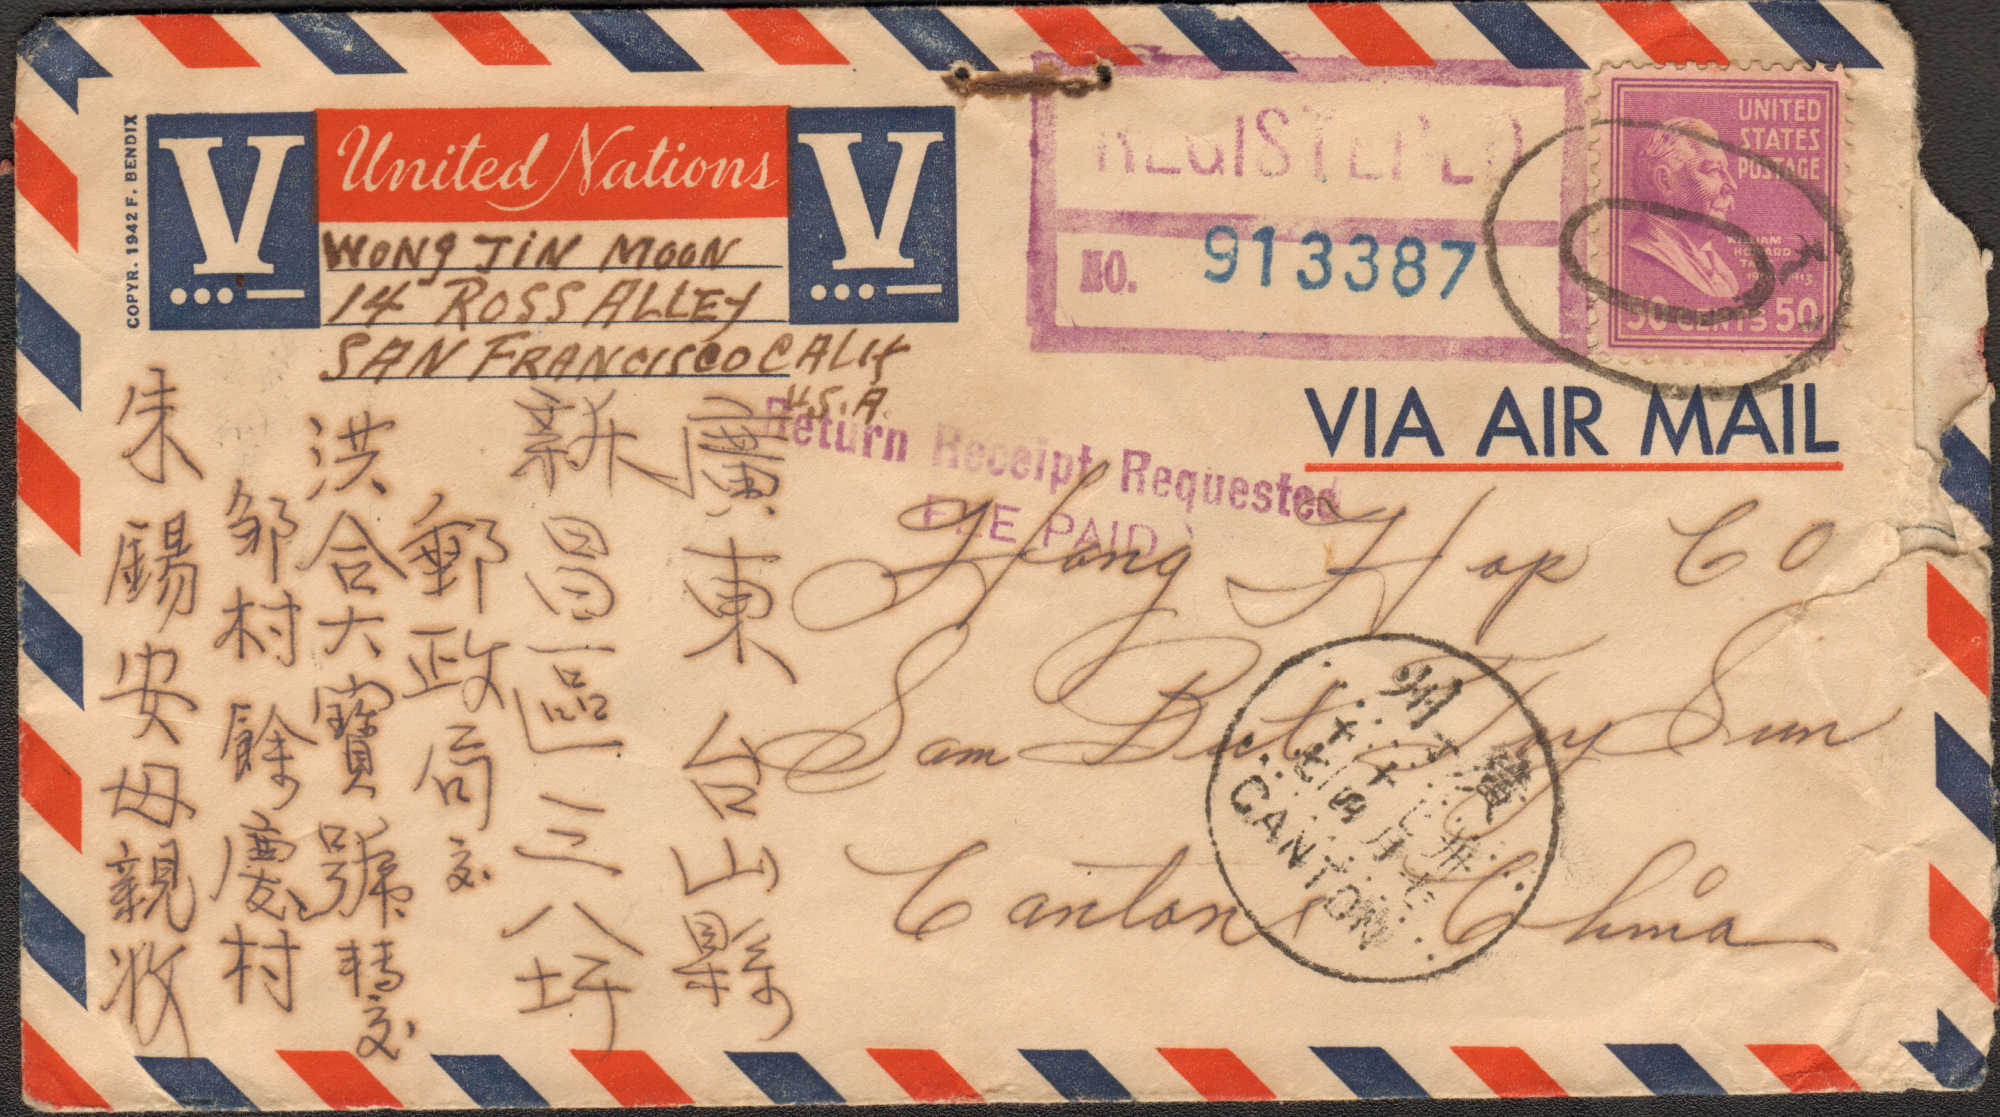 COPYR. 1942 F. BENDIX
V United Nations V
WONG JIN MOON
14 ROSS ALLEY
SAN FRANCISCO CALIF
U.S.A.
REGISTERED
NO. 913387
UNITED
STATES
POSTAGE
WILLIAM
HOWARD
50 CENTS 50
VIA AIR MAIL
Return Receipt Requested
FEE PAID
Hong Hop CO
Sam Bat Toy Sun
Canton China
廣州
CANTON
廣東台山縣
新昌區三八坪
郵政局交
洪合大寶號轉交
邹村餘慶村
朱錫安母親收